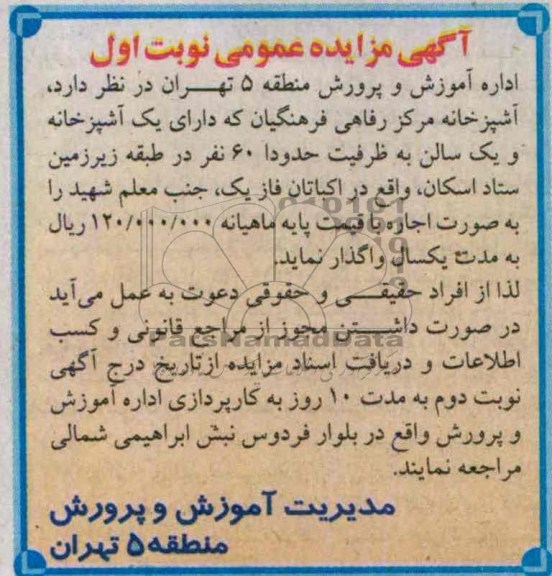 آگهی مزایده عمومی نوبت اول
اداره آموزش و پرورش منطقه ۵ تهران در نظر دارد،
آشپزخانه مرکز رفاهی فرهنگیان که دارای یک آشپزخانه
و یک سالن به ظرفیت حدودا ۶۰ نفر در طبقه زیرزمین
ستاد اسکان، واقع در اکباتان فاز یک، جنب معلم شهید را
به صورت اجاره با قیمت پایه ماهیانه ۱۲۰/۰۰۰/۰۰۰ ریال
به مدت یکسال واگذار نماید.
لذا از افراد حقیقی و حقوقی دعوت به عمل می‌آید
در صورت داشتن مجوز از مراجع قانونی و کسب
ParsNamadData
اطلاعات و دریافت اسناد مزایده از تاریخ درج آگهی
نوبت دوم به مدت ۱۰ روز به کارپردازی اداره آموزش
و پرورش واقع در بلوار فردوس نبش ابراهیمی شمالی
مراجعه نمایند.
مدیریت آموزش و پرورش
منطقه ۵ تهران